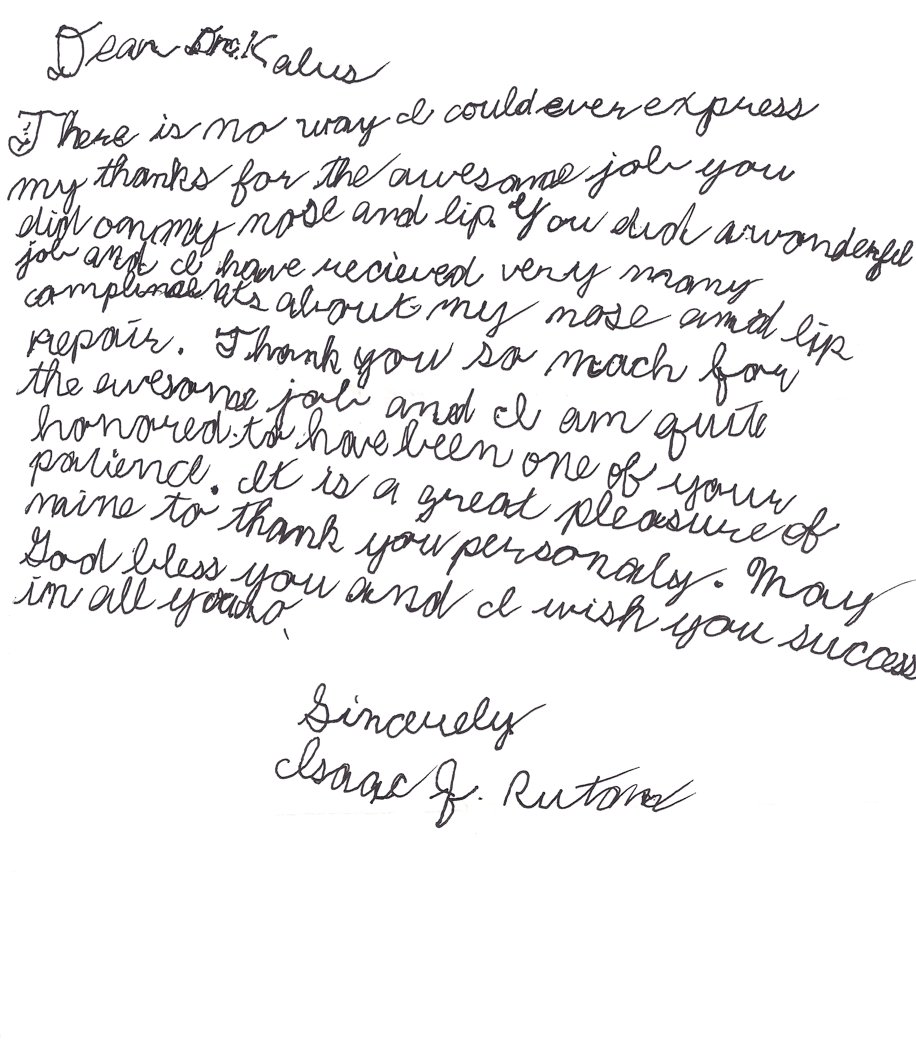 Dear Dr. Kalus
There is no way I could ever express
my thanks for the awesome job you
did on my nose and lip. You did a wonderful
job and I have recieved very many
compliments about my nose and lip
repair. Thank you so much for
the awesome job and I am quite
honored to have been one of your
patience. It is a great pleasure of
maine to thank you personaly. May
God bless you and I wish you success
in all you
Sincerely
Isaac J.